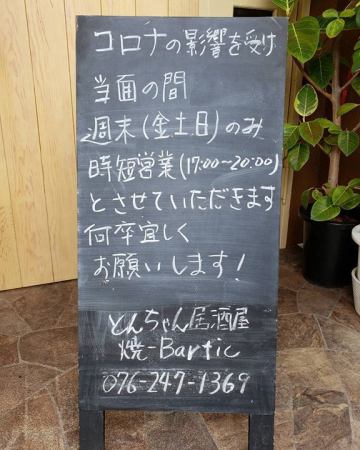 コロナの影響を受け
当面の間
週末(金土日)のみ
時短営業(17:00~20:00)
とさせていただきます
何卒宜しく
お願いします!
とんちゃん居酒屋
焼-Bartic
076-247-1369